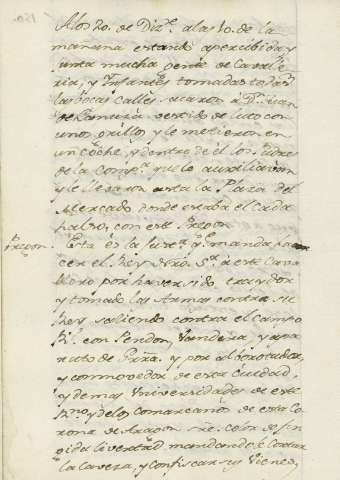 A los 20. de Diz.e a las 10. de la
mañana estando apercibida y
junta mucha gente de Cavalle
ria, y Infantes tomadas todas
las bocas calles sacaron á D.n Juan
de Lanuza vestido de luto con
unos grillos y le metieron en
un coche, y dentro de él los Padres
de la Comp.a que le auxiliavan
y le llevaron asta la Plaza del
Mercado donde estaba el cada
halso, con este Pregon.
Pregon. Esta es la Just.a q. manda hacer
el Rey nro. S.r á este Cava
llero por haver sido traydor
y tomado las Armas contra su
Rey saliendo contra el campo
R.l con Pendon, Vandera, y apa
rato de Grra. y por alborotador,
y conmovedor de esta Ciudad,
y demas Universidades de este
Rno. y de los comarcanos de esta Co
rona de Aragon so color de fin
gida livertad mandandole Cortar
la Caveza, y confiscar sus Vienes,